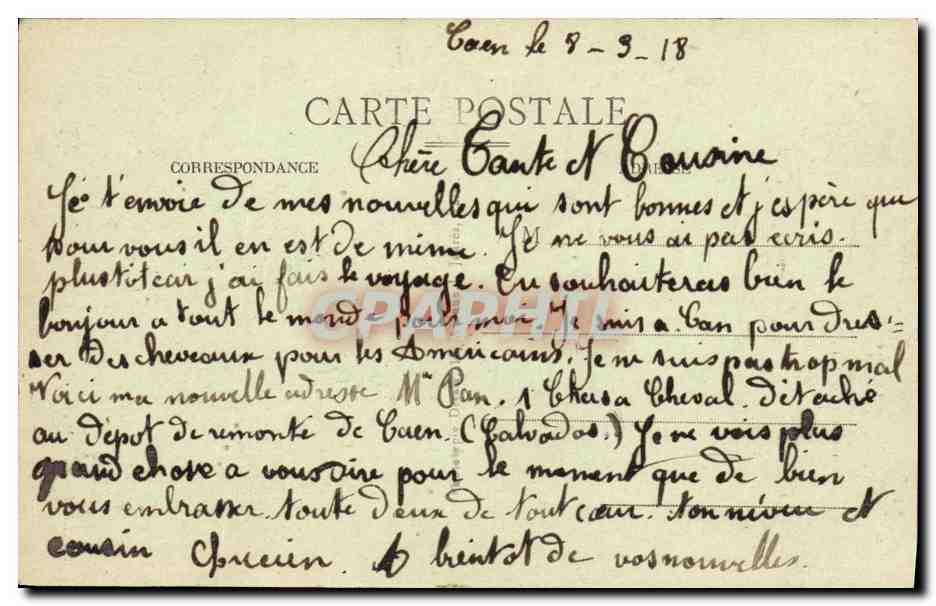 Caen le 8-9-18
CARTE POSTALE
CORRESPONDANCE
Chère Tante et Cousine
Je t'envoie de mes nouvelles qui sont bonnes et j'espère que
pour vous il en est de mime. Je ne vous ai pas ecris.
plustôt car j'ai fais le voyage. Tu souhaiteras bien le
bonjour a tout le monde pour moi. Je suis a Can pour dres-
ser des cheveaux pour les Américains. Je ne suis pas trop mal
Voici ma nouvelle adresse Mr Pan. 1 Chasa Cheval. Détaché
au dépot de remonte de Caen. (Calvados.) Je ne vois plus
grand chose a vous dire pour le moment que de bien
vous embrasser toute deux de tout cœur. ton neveu et
cousin Lucien. A bientot de vos nouvelles.
CPAPHIL